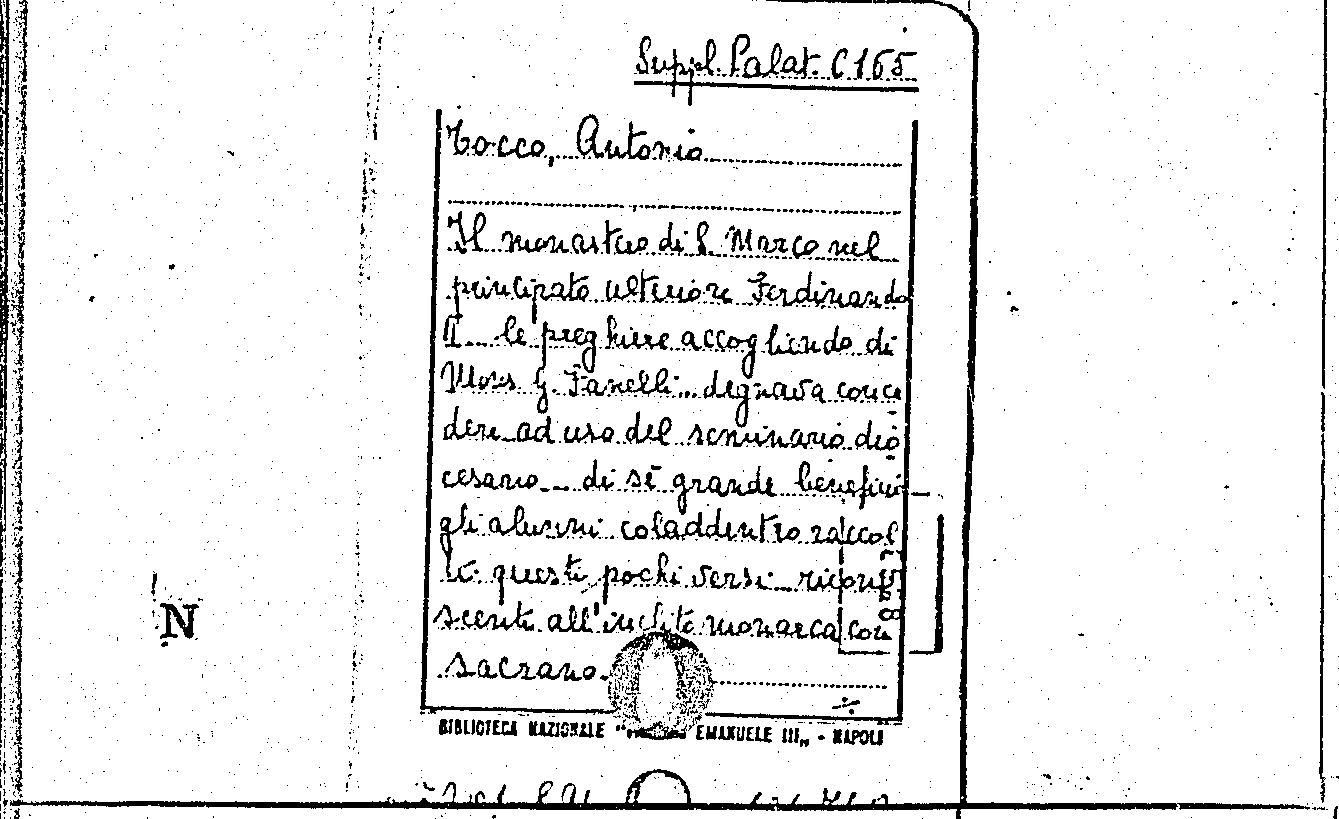 Suppl. Palat. C 165
Tocco, Antonio
Il monastero di S. Marco nel
principato ulteriore Ferdinando
II... le preghiere accogliendo di
Mons G. Fanelli... degnava conce
dere ad uso del seminario dio
cesano... di sè grande beneficio
gli alunni coladdentro raccol
ti questi pochi versi ricono
scenti all'inclito monarca con
sacrano.
N
BIBLIOTECA NAZIONALE " EMANUELE III„ - NAPOLI